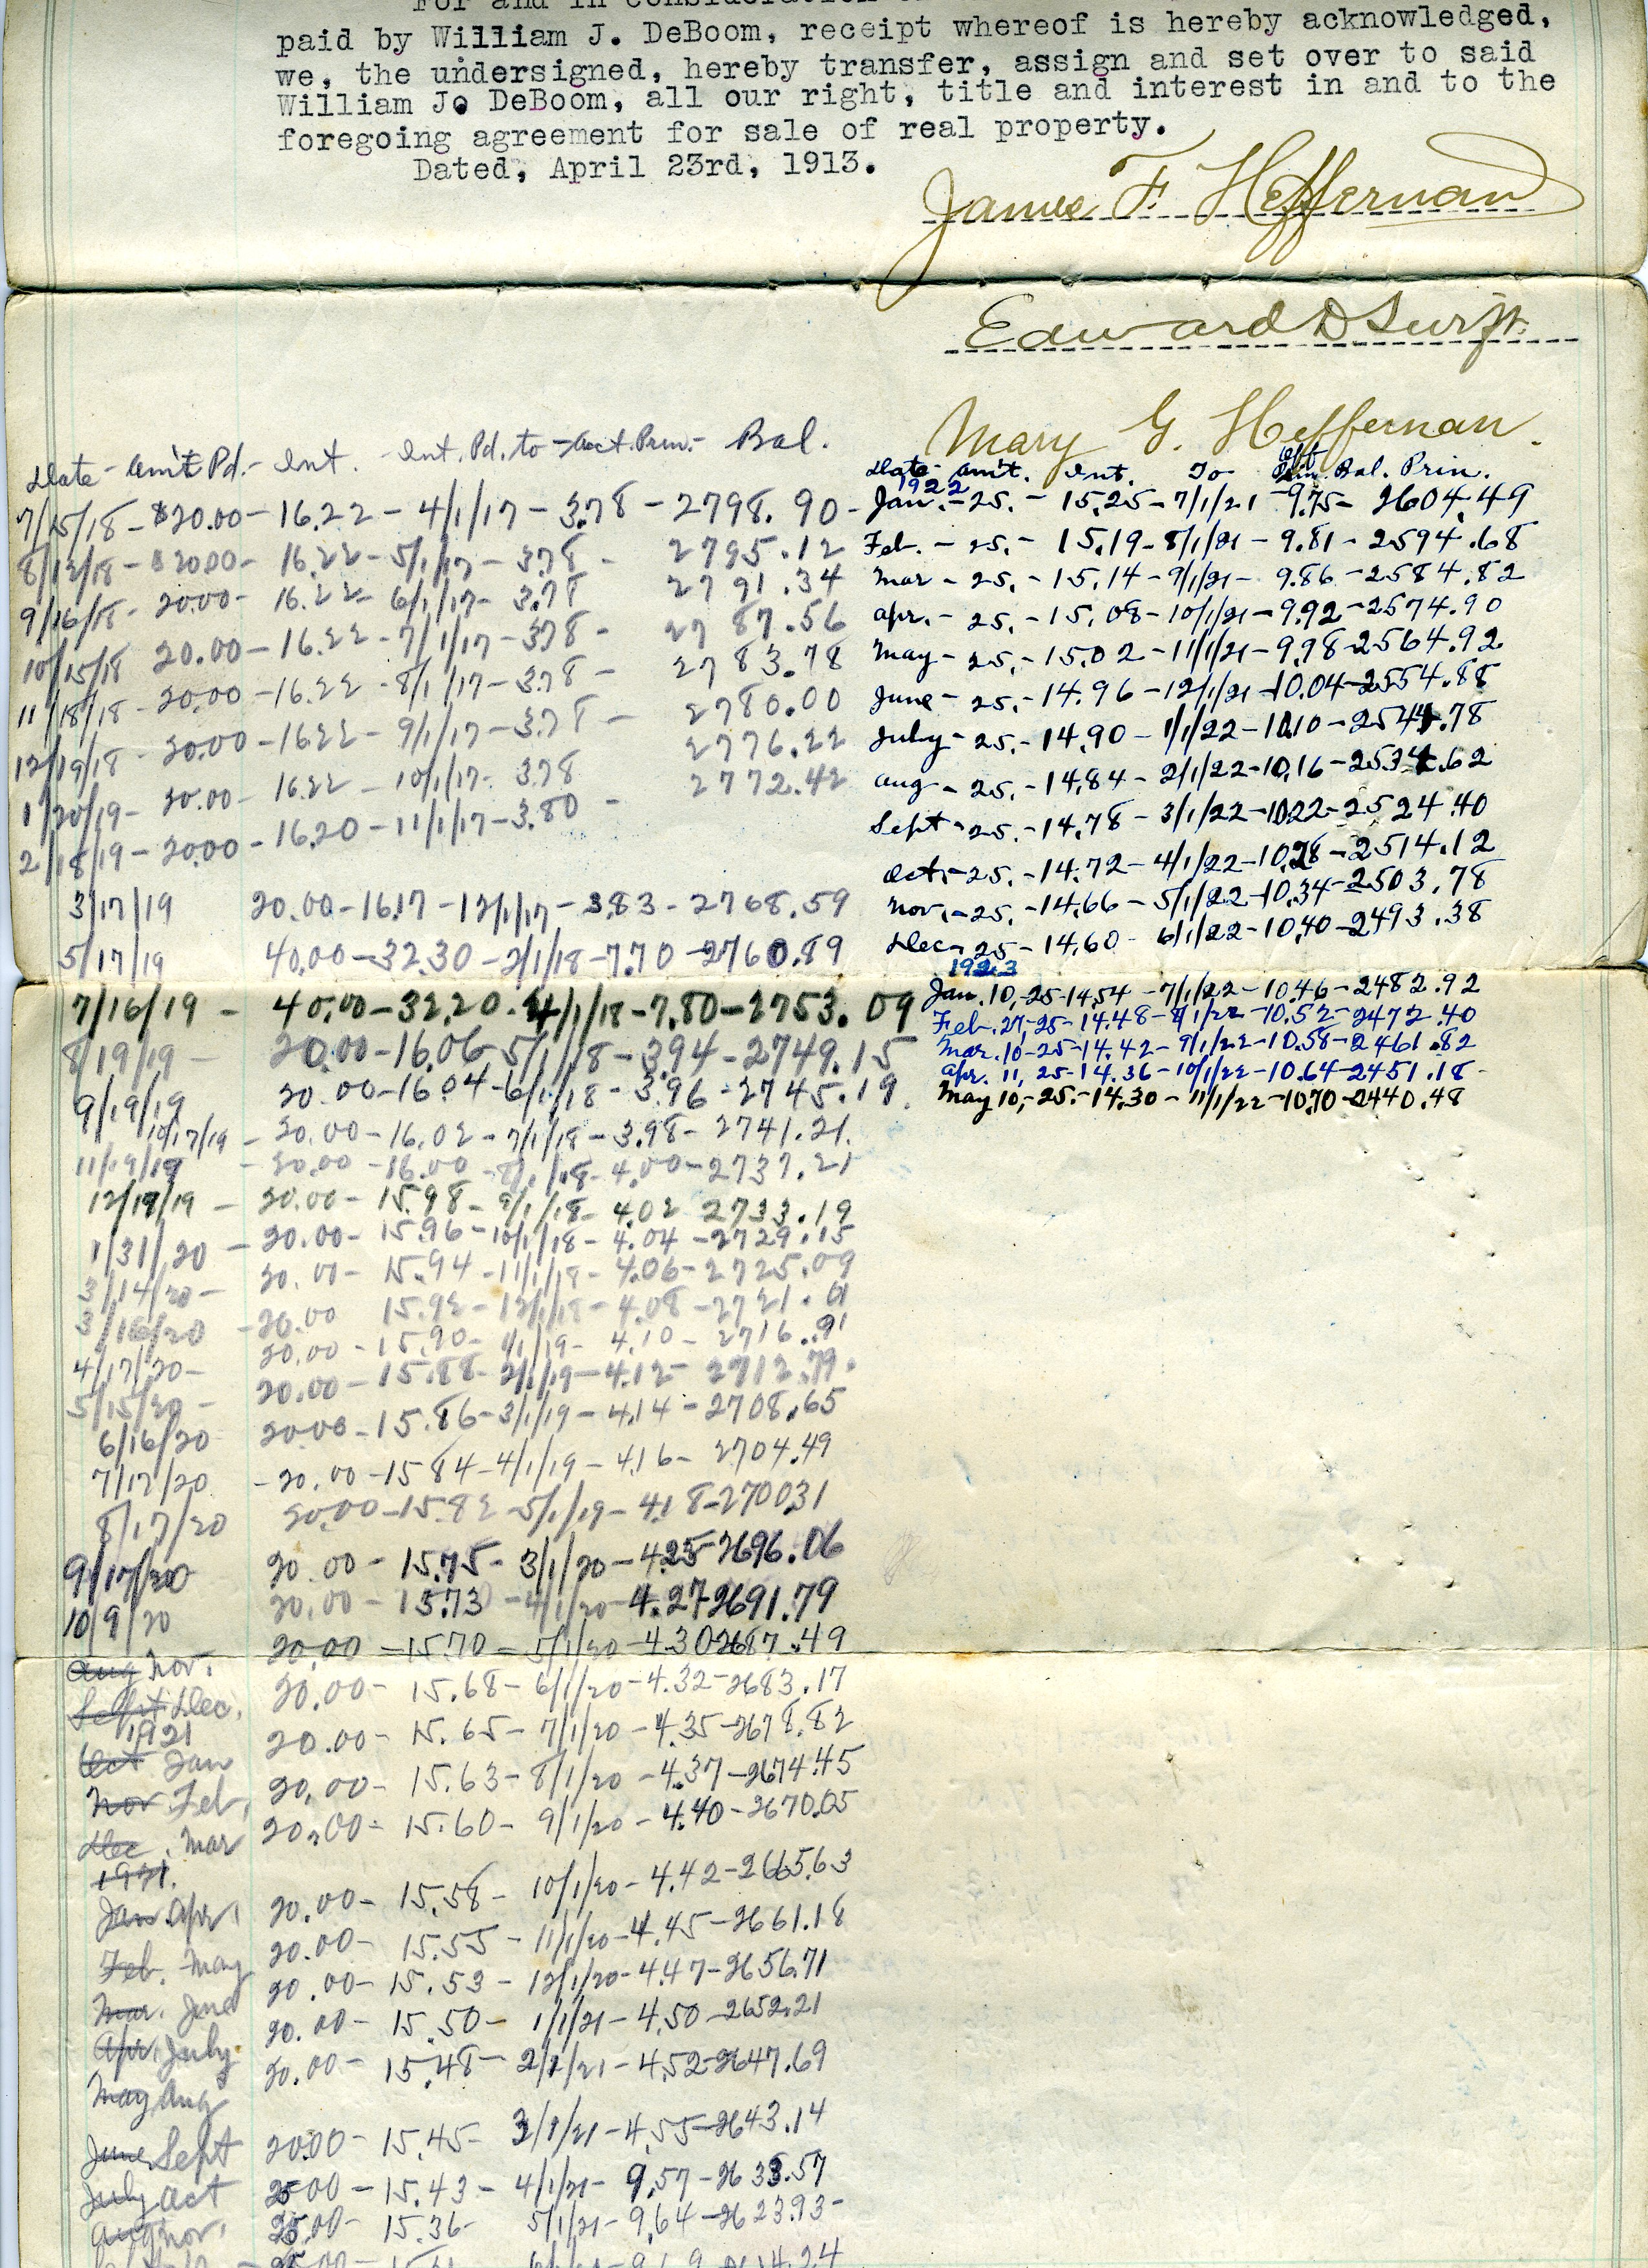 For and in consideration
paid by William J. DeBoom, receipt whereof is hereby acknowledged,
we, the undersigned, hereby transfer, assign and set over to said
William J. DeBoom, all our right, title and interest in and to the
foregoing agreement for sale of real property.
Dated, April 23rd, 1913.
James F. Heffernan
Edward D Swift
Mary G. Heffernan.
Date - Am't Pd. - Int. - Int. Pd. to - Acct. Prin. - Bal.
7/15/18 - $20.00 - 16.22 - 4/1/17 - 3.78 - 2798.90
8/12/18 - $20.00 - 16.22 - 5/1/17 - 3.78 - 2795.12
9/16/18 - 20.00 - 16.22 - 6/1/17 - 3.78 2791.34
10/15/18 20.00 - 16.22 - 7/1/17 - 3.78 - 2787.56
11/18/18 - 20.00 - 16.22 - 8/1/17 - 3.78 - 2783.78
12/19/18 - 20.00 - 16.22 - 9/1/17 - 3.78 - 2780.00
1/20/19 - 20.00 - 16.22 - 10/1/17 - 3.78 2776.22
2/18/19 - 20.00 - 16.20 - 11/1/17 - 3.80 - 2772.42
3/17/19 20.00 - 16.17 - 12/1/17 - 3.83 - 2768.59
5/17/19 40.00 - 32.30 - 2/1/18 - 7.70 - 2760.89
7/16/19 - 40.00 - 32.20 - 4/1/18 - 7.80 - 2753.09
8/19/19 - 20.00 - 16.06 - 5/1/18 - 3.94 - 2749.15
9/19/19 20.00 - 16.04 - 6/1/18 - 3.96 - 2745.19.
10/17/19 - 20.00 - 16.02 - 7/1/18 - 3.98 - 2741.21.
11/19/19 - 20.00 - 16.00 - 8/1/18 - 4.00 - 2737.21
12/19/19 - 20.00 - 15.98 - 9/1/18 - 4.02 2733.19
1/31/20 - 20.00 - 15.96 - 10/1/18 - 4.04 - 2729.15
3/14/20 - 20.00 - 15.94 - 11/1/18 - 4.06 - 2725.09
3/16/20 - 20.00 15.92 - 12/1/18 - 4.08 - 2721.01
4/17/20 - 20.00 - 15.90 - 1/1/19 - 4.10 - 2716.91
5/15/20 - 20.00 - 15.88 - 2/1/19 - 4.12 - 2712.79.
6/16/20 20.00 - 15.86 - 3/1/19 - 4.14 - 2708.65
7/17/20 - 20.00 - 15 84 - 4/1/19 - 4.16 - 2704.49
8/17/20 20.00 - 15.82 - 5/1/19 - 4.18 - 2700.31
9/17/20 20.00 - 15.75 - 3/1/20 - 4.25 - 2696.06
10/9/20 20.00 - 15.73 - 4/1/20 - 4.27 - 2691.79
Aug Nov. 20.00 - 15.70 - 5/1/20 - 4.30 2687.49
Sept Dec. 20.00 - 15.68 - 6/1/20 - 4.32 - 2683.17
1921
Oct Jan 20.00 - 15.65 - 7/1/20 - 4.35 - 2678.82
Nov Feb. 20.00 - 15.63 - 8/1/20 - 4.37 - 2674.45
Dec. Mar 20.00 - 15.60 - 9/1/20 - 4.40 - 2670.05
1921.
Jan. Apr. 20.00 - 15.58 - 10/1/20 - 4.42 - 2665.63
Feb. May 20.00 - 15.55 - 11/1/20 - 4.45 - 2661.18
Mar. June 20.00 - 15.53 - 12/1/20 - 4.47 - 2656.71
Apr. July 20.00 - 15.50 - 1/1/21 - 4.50 - 2652.21
May Aug 20.00 - 15.48 - 2/1/21 - 4.52 - 2647.69
June Sept 20.00 - 15.45 - 3/1/21 - 4.55 - 2643.14
July Oct 25.00 - 15.43 - 4/1/21 - 9.57 - 2633.57
Aug Nov. 25.00 - 15.36 - 5/1/21 - 9.64 - 2623.93 -
Date - Am't. Int. To Prin. Bal. Prin.
1922
Jan. - 25. - 15.25 - 7/1/21 - 9.75 - 2604.49
Feb. - 25. - 15.19 - 8/1/21 - 9.81 - 2594.68
Mar - 25. - 15.14 - 9/1/21 - 9.86 - 2584.82
Apr. - 25. - 15.08 - 10/1/21 - 9.92 - 2574.90
May - 25. - 15.02 - 11/1/21 - 9.98 - 2564.92
June - 25. - 14.96 - 12/1/21 - 10.04 - 2554.88
July - 25. - 14.90 - 1/1/22 - 10.10 - 2544.78
Aug - 25. - 14.84 - 2/1/22 - 10.16 - 2534.62
Sept - 25. - 14.78 - 3/1/22 - 10.22 - 2524.40
Oct. - 25. - 14.72 - 4/1/22 - 10.28 - 2514.12
Nov. - 25. - 14.66 - 5/1/22 - 10.34 - 2503.78
Dec - 25 - 14.60 - 6/1/22 - 10.40 - 2493.38
1923
Jan. 10, - 25 - 14.54 - 7/1/22 - 10.46 - 2482.92
Feb. 27, - 25 - 14.48 - 8/1/22 - 10.52 - 2472.40
Mar. 10 - 25 - 14.42 - 9/1/22 - 10.58 - 2461.82
Apr. 11, 25 - 14.36 - 10/1/22 - 10.64 - 2451.18 -
May 10, - 25. - 14.30 - 11/1/22 - 10.70 - 2440.48